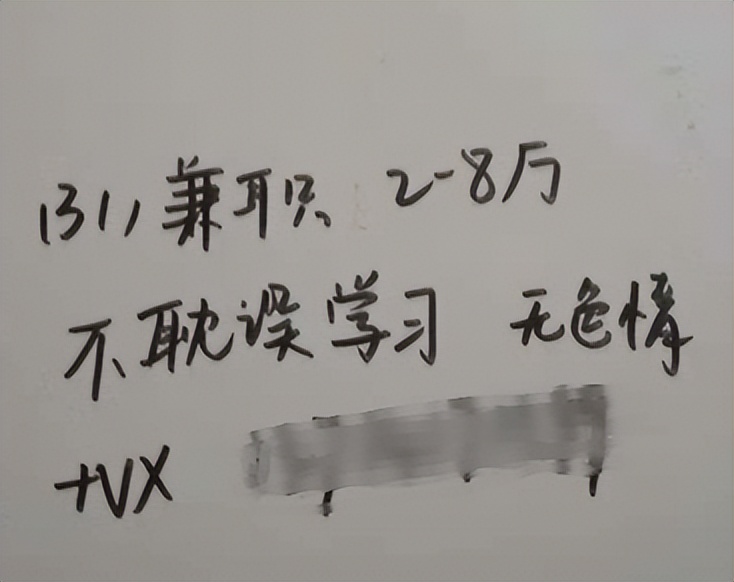 131，兼职 2-8万
不耽误学习 无色情
+VX